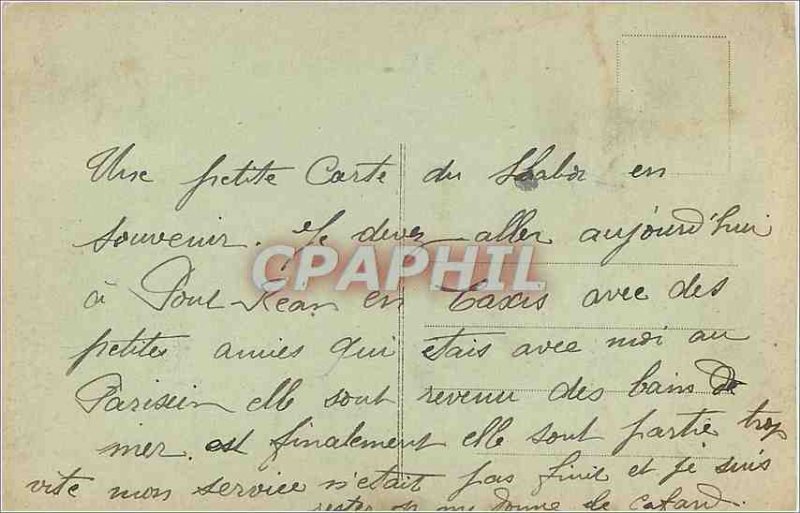 Une petite Carte du en
souvenir. Je devez aller aujourd'hui
à Pont-Kean en taxis avec des
petites amies qui etais avec moi au
Parisein elle sont revenu des bain de
mer. est finalement elle sont partie trop
vite mon service n'etait pas finie et je suis
rester ça me donne le cafard.
CPAPHIL